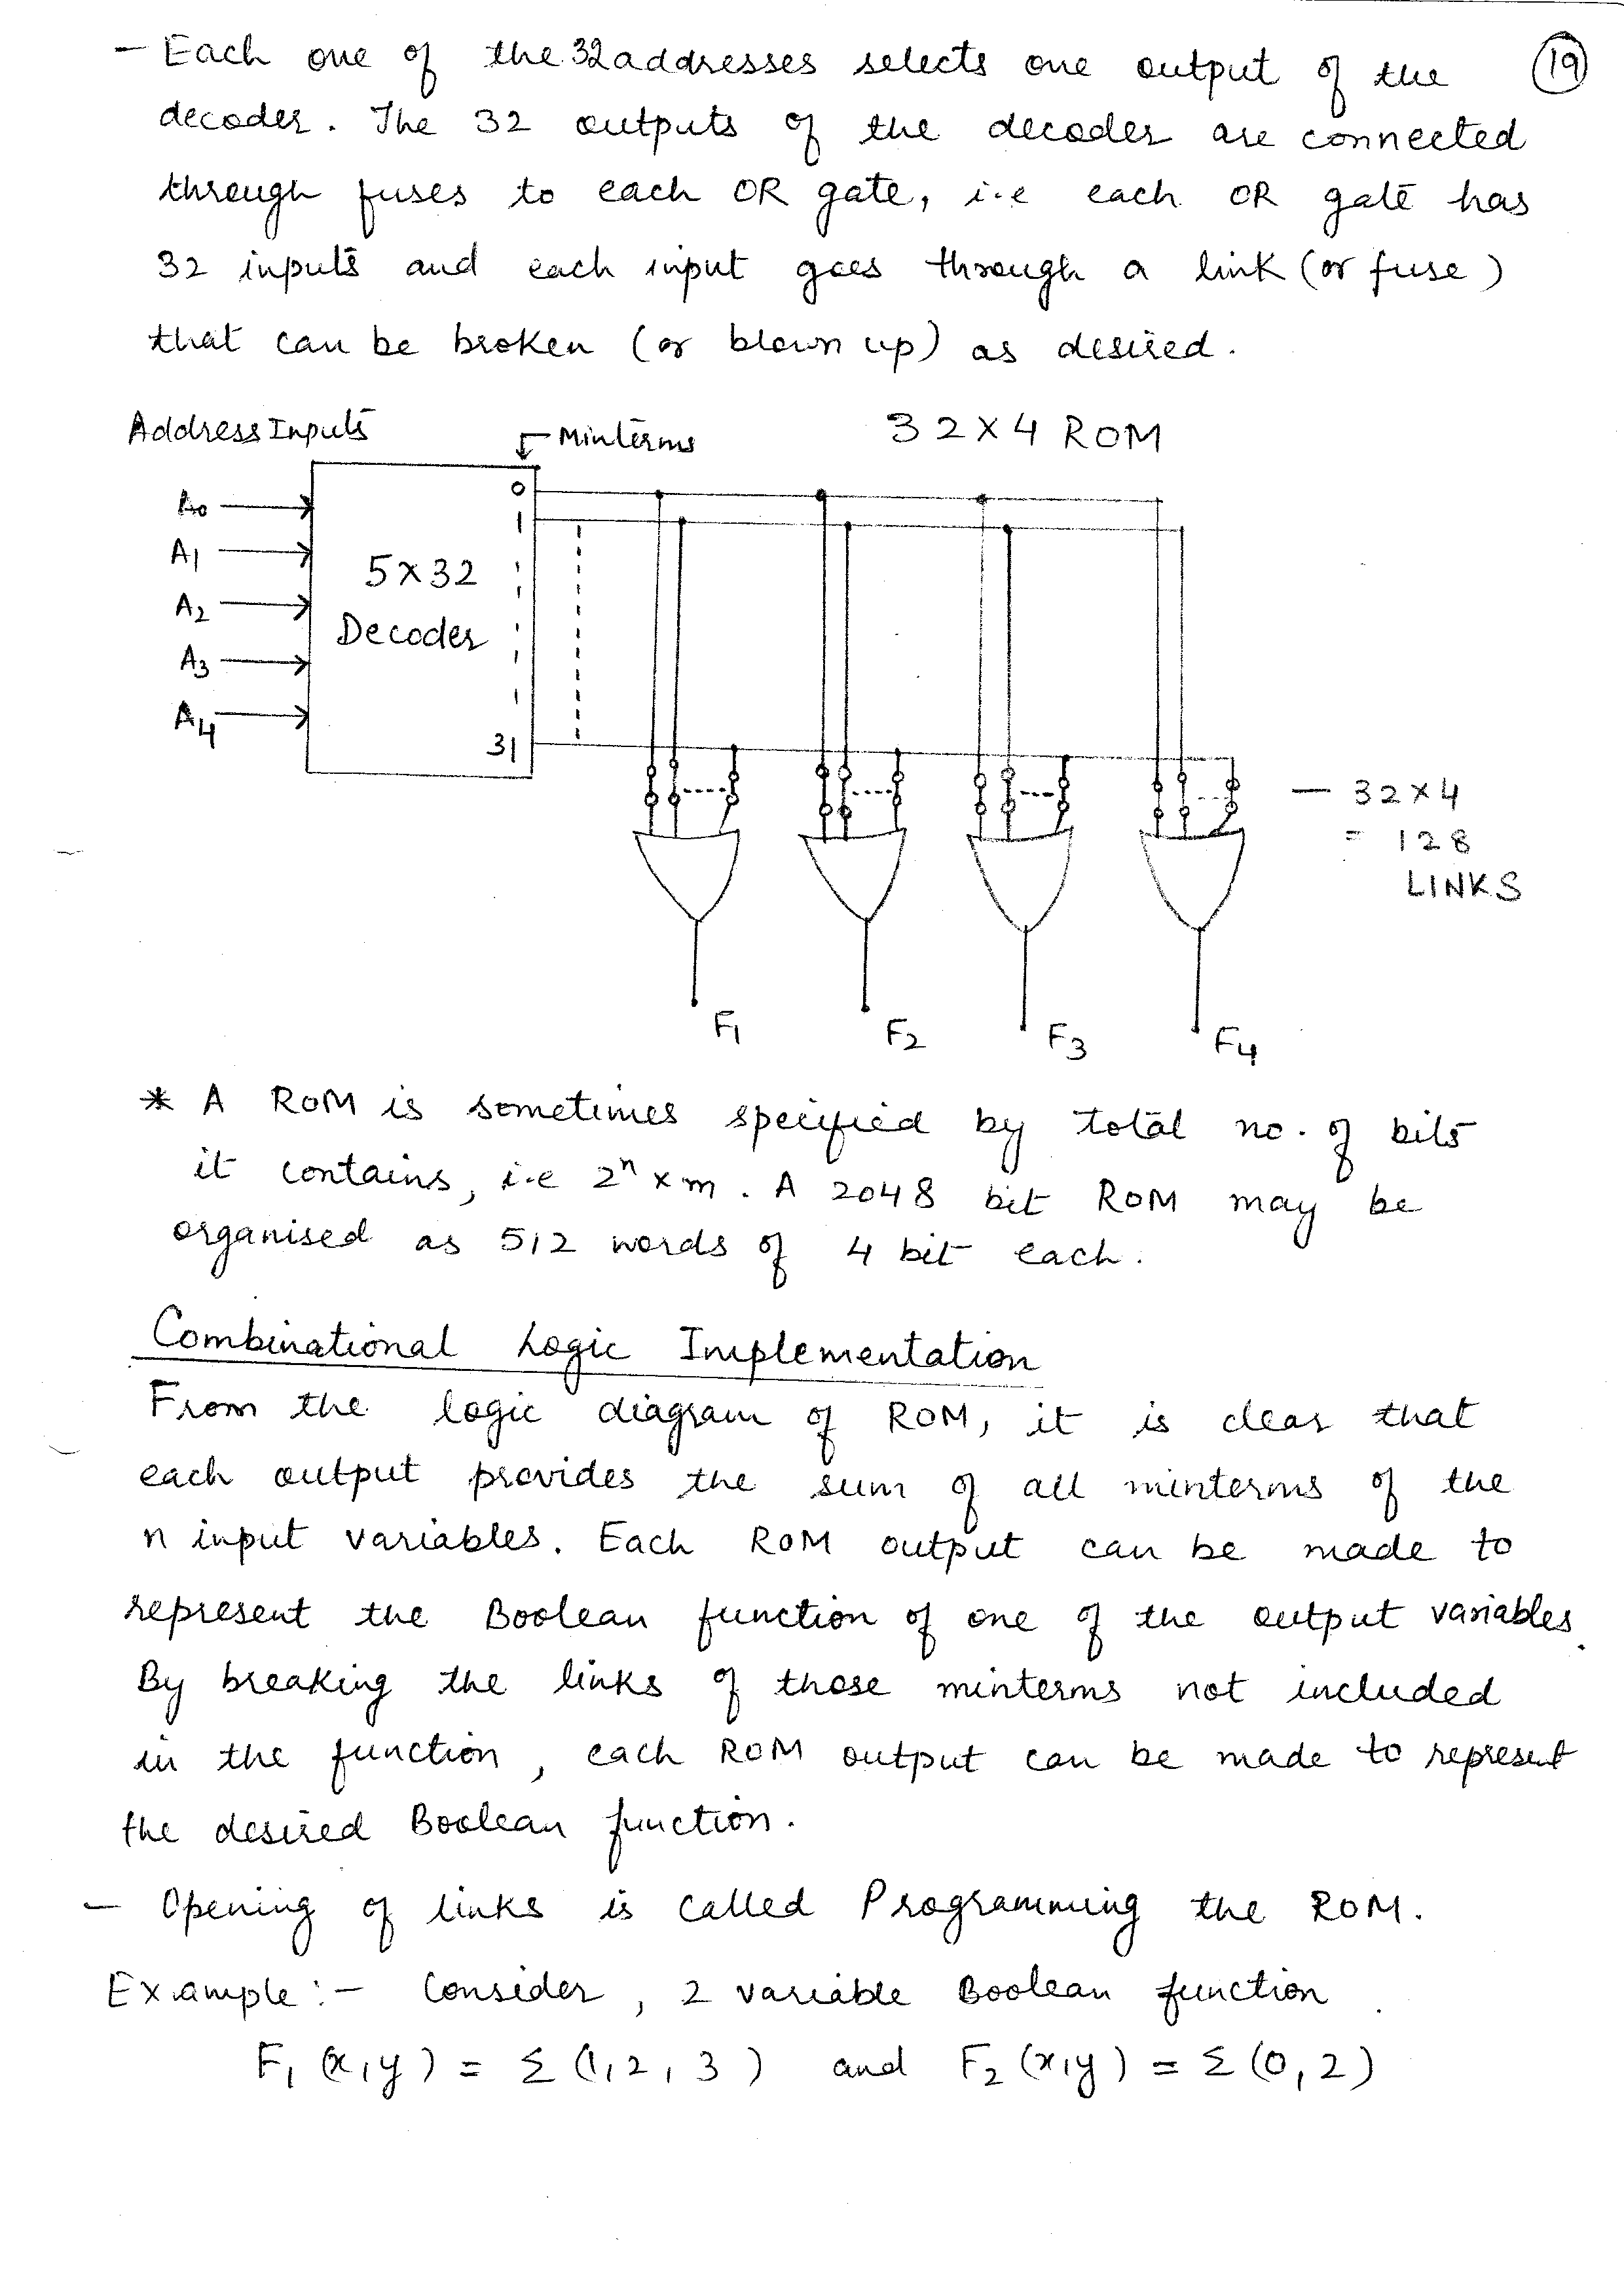 - Each one of the 32 addresses selects one output of the (19)
decoder. The 32 outputs of the decoder are connected
through fuses to each OR gate, i.e each OR gate has
32 inputs and each input goes through a link (or fuse)
that can be broken (or blown up) as desired.
Address Inputs
Minterms
32X4 ROM
A0
A1
A2
A3
A4
5X32
Decoder
0
1
31
- 32X4
= 128
LINKS
F1 F2 F3 F4
* A ROM is sometimes specified by total no. of bits
it contains, i.e 2ⁿ x m. A 2048 bit ROM may be
organised as 512 words of 4 bit each.
Combinational Logic Implementation
From the logic diagram of ROM, it is clear that
each output provides the sum of all minterms of the
n input variables. Each ROM output can be made to
represent the Boolean function of one of the output variables.
By breaking the links of those minterms not included
in the function, each ROM output can be made to represent
the desired Boolean function.
- Opening of links is called Programming the ROM.
Example:- Consider, 2 variable Boolean function
F1 (x,y) = Σ (1,2,3) and F2 (x,y) = Σ (0,2)